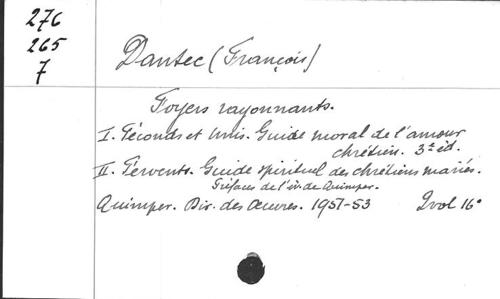 276
265
7
Dantec (François)
Foyers rayonnants.
I. Féconds et Unis. Guide moral de l'amour
chrétien. 3e éd.
II. Fervents. Guide spirituel des chrétiens mariés.
Préfaces de l'év. de Quimper.
Quimper. Dir. des Œuvres. 1951-53 2 vol 16°